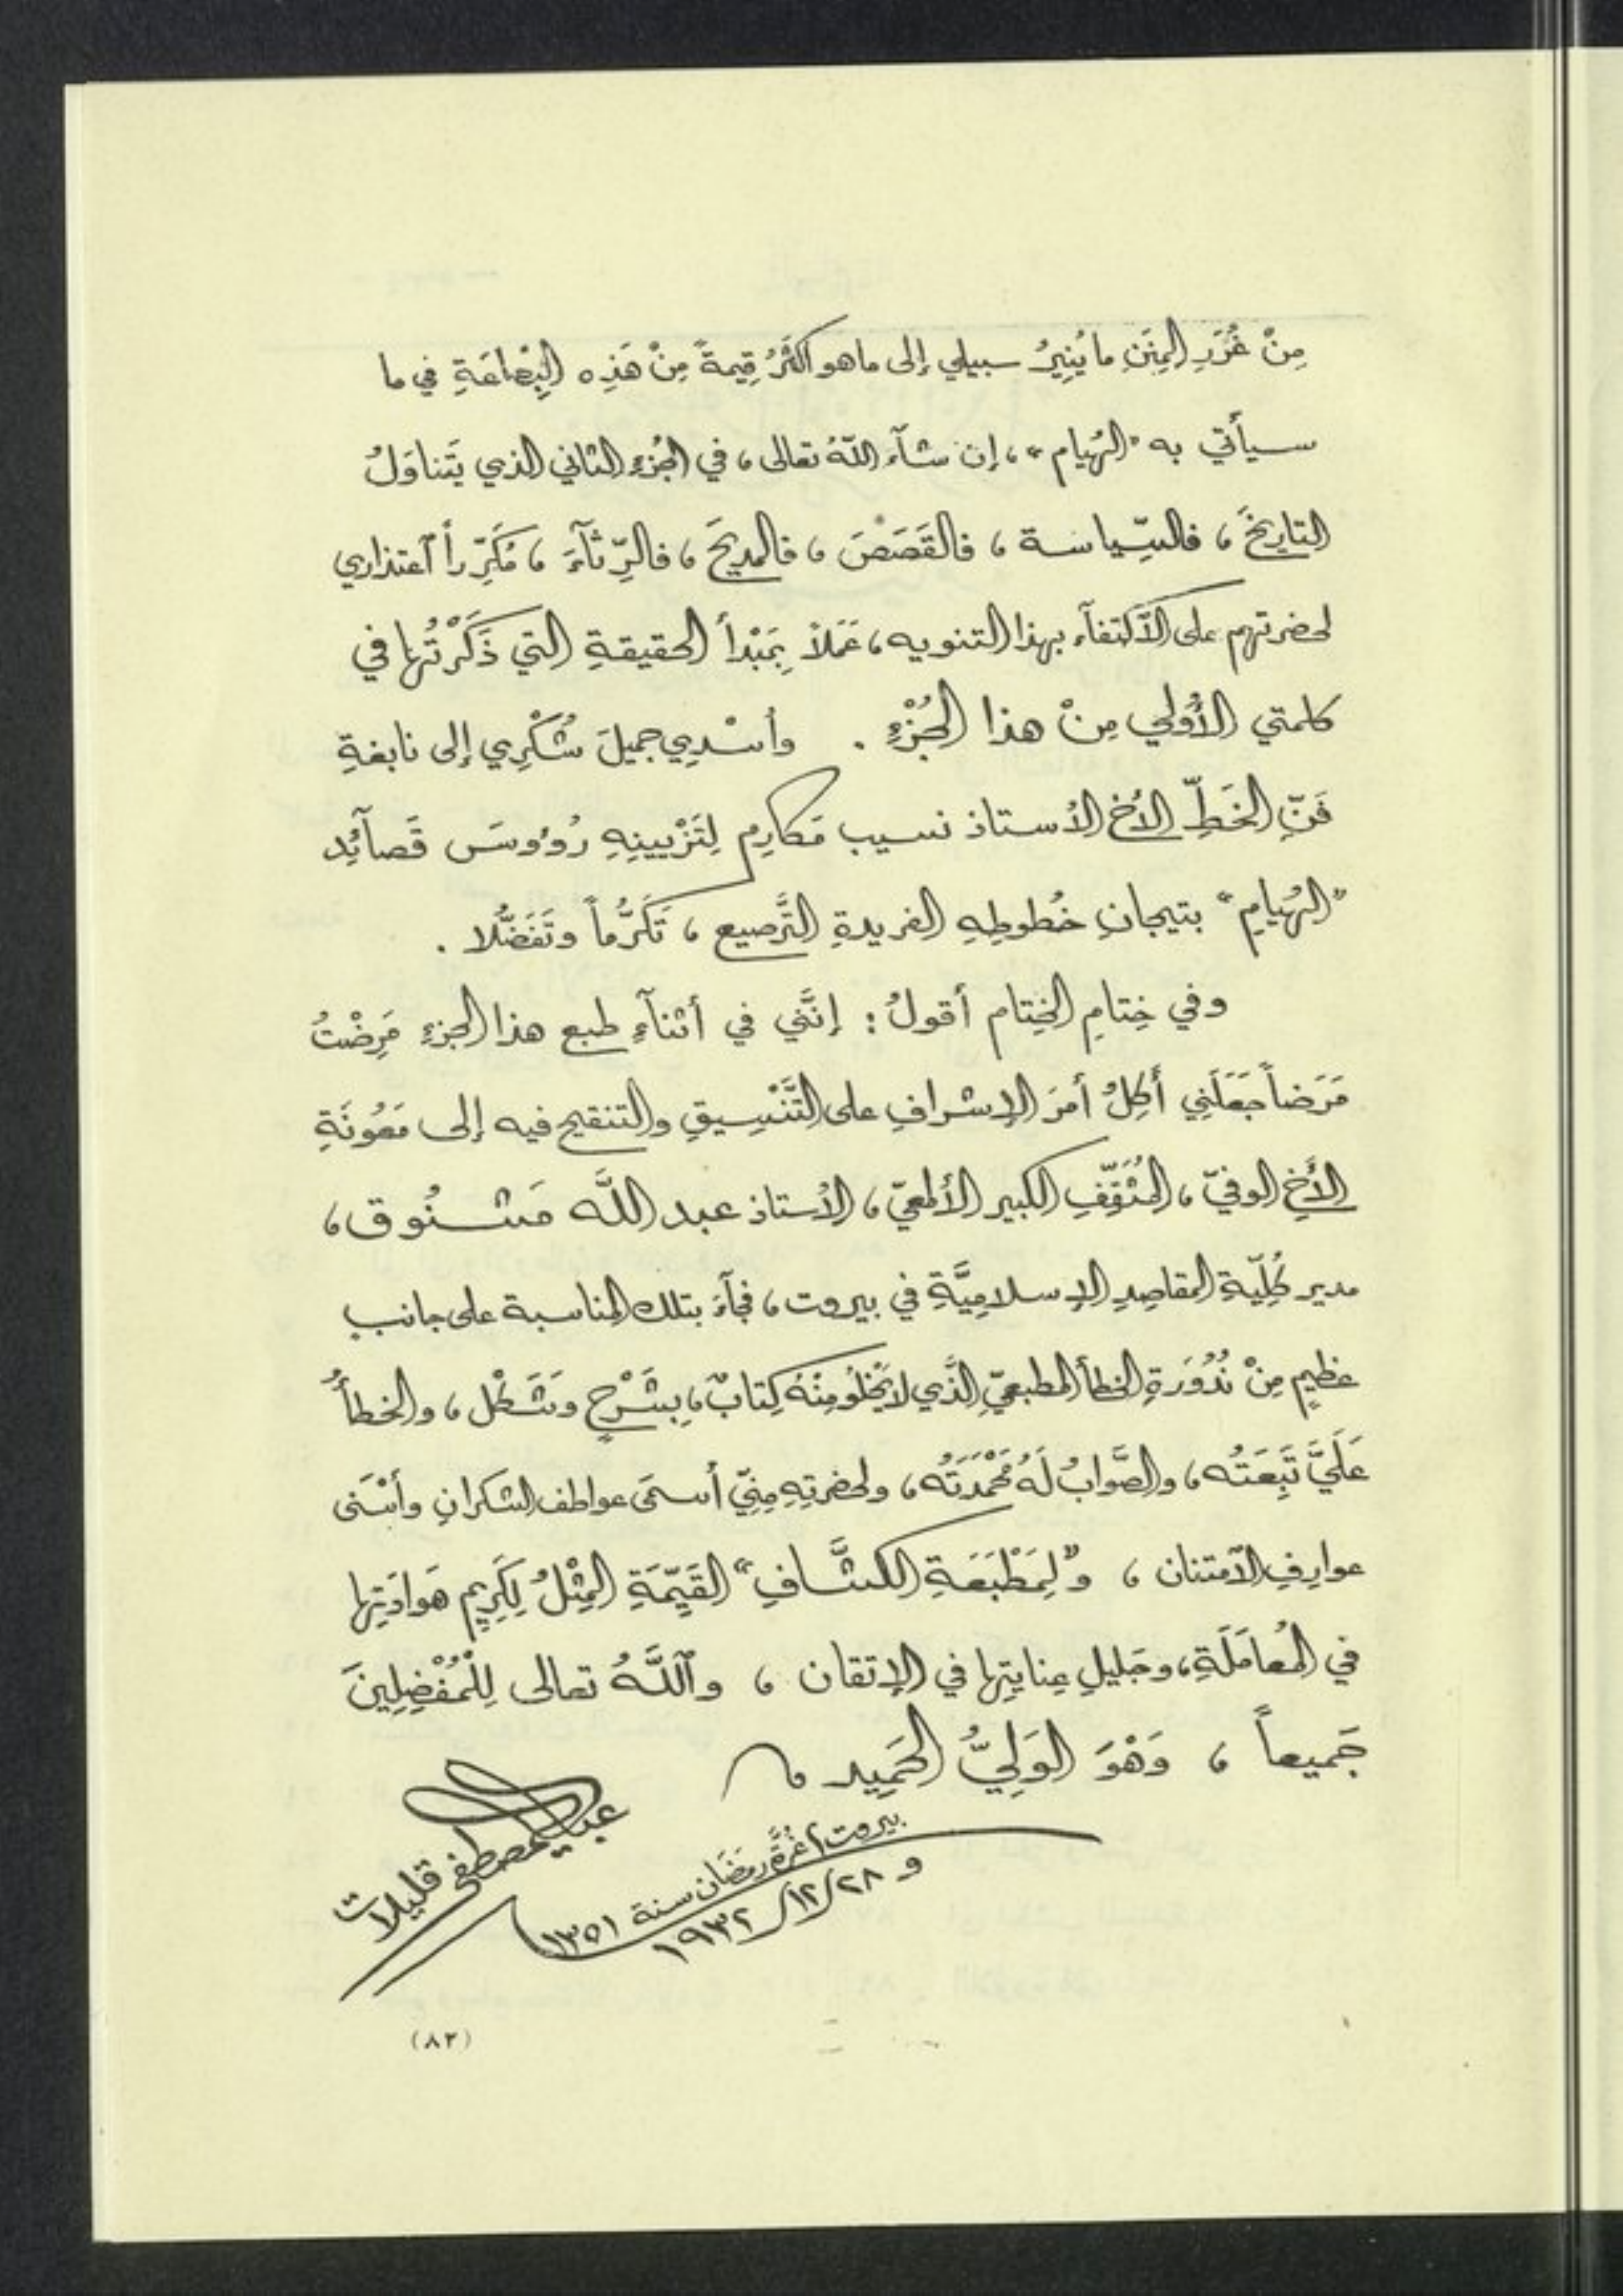 مِنْ غُرَرِ المِنَنِ ما يُنِيرُ سبيلي إلى ما هو أكثَرُ قِيمةً مِنْ هَذِه البِضاعَةِ في ما
سيأتي به "الهُيام"، إن شآء اللّهُ تعالى، في الجُزءِ الثاني الذي يَتَناوَلُ
التاريخَ، فالسِّياسة، فالقَصَصَ، فالمديحَ، فالرِّثآءَ، مُكَرِّراً ٱعتذاري
لحضرتهم على الٱكتفآء بهذا التنويه، عَمَلاً بِمَبْدأ الحقيقةِ التي ذَكَرْتُها في
كلمتي الأُولى مِنْ هذا الجُزْءِ . وأُسْدِي جميلَ شُكْرِي إلى نابغةِ
فَنِّ الخَطِّ الأخ الأستاذ نسيب مَكارِم لِتَزْيينِهِ رُؤوسَ قَصآئِد
"الهُيامِ" بتيجانِ خُطوطِهِ الفريدةِ التَّرصيع، تَكَرُّماً وتَفَضُّلا .
وفي خِتامِ الخِتام أقولُ: إنَّني في أثنآءِ طبع هذا الجزءِ مَرِضْتُ
مَرَضاً جَعَلَنِي أَكِلُ أمرَ الإشرافِ على التَّنْسِيقِ والتنقيح فيه إلى مَعُونَةِ
الأَخِ الوفيّ، المُثَقَّفِ الكبير الألمعيّ، الأستاذ عبد اللَّه مَشنُوق،
مدير كُلِّيّةِ المقاصِدِ الإسلامِيَّةِ في بيروت، فجآءَ بتلك المناسبة على جانبٍ
عظيمٍ مِنْ نُدُورَةِ الخطأ المطبعيّ الَّذي لا يَخْلُو مِنْهُ كِتابٌ، بِشَرْحٍ وشَكْل، والخطأُ
عَلَيَّ تَبِعَتُه، والصَّوابُ لَهُ مَحْمَدَتُه، ولحضرتِهِ مِنِّي أسمَى عواطف الشكرانِ وأسْنَى
عوارِفِ الٱمتنان، و"لِمَطْبَعَةِ الكشَّافِ" القَيِّمَةِ المِثْلُ لِكَرِيمِ هَوادَتِها
في المُعامَلَةِ، وجَليلِ عِنايتِها في الإتقان، وٱللَّهُ تعالى لِلْمُفْضِلِينَ
جَميعاً، وَهْوَ الوَلِيُّ الحَمِيد
بيروت ١ غُرَّة رمَضَان سنة ١٣٥١
و ٢٨/١٢/١٩٣٢
مصطفى قليلات
(٨٢)